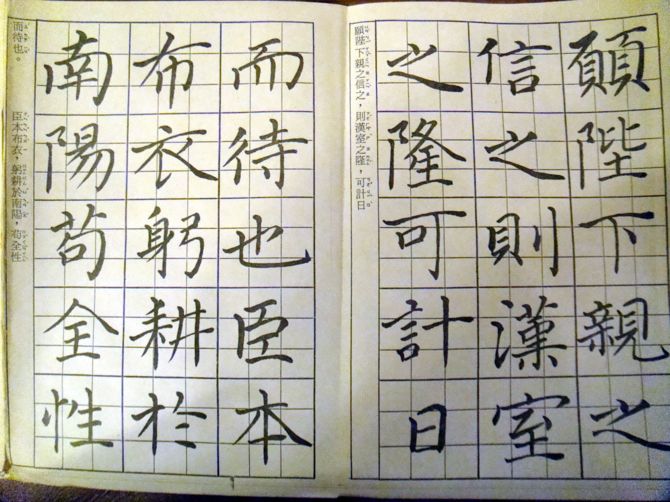 願陛下親之
信之則漢室
之隆可計日
願陛下親之信之，則漢室之隆，可計日
而待也臣本
布衣躬耕於
南陽苟全性
而待也。
臣本布衣，躬耕於南陽，苟全性